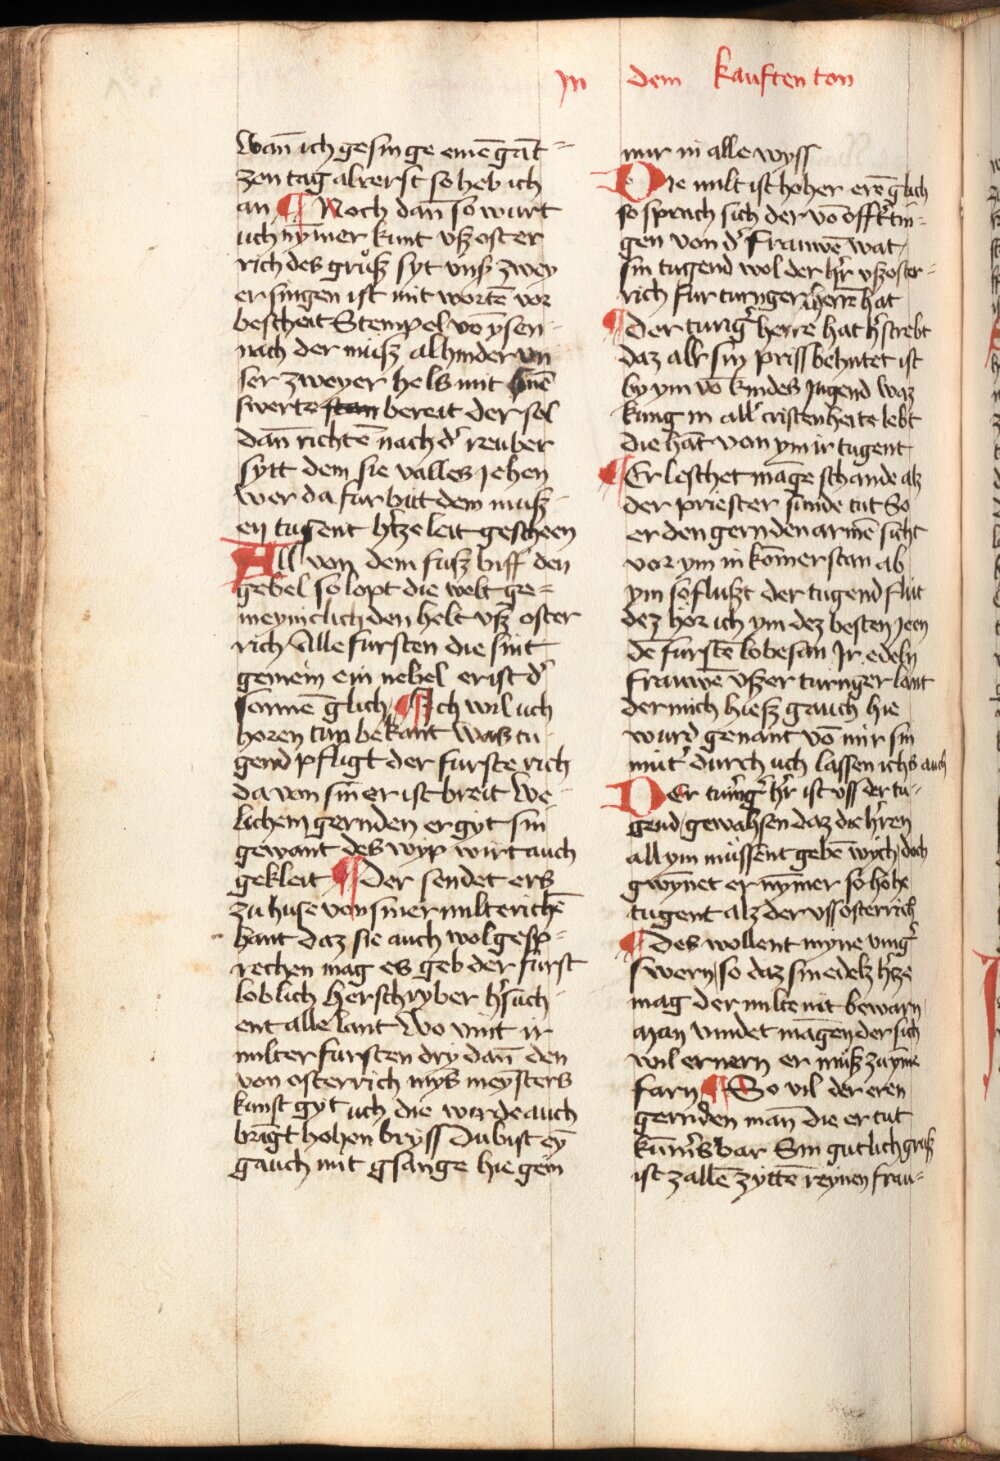 In dem kauften ton
Wan̄ ich gesinge einē gāt=
zen tag alrerst so heb ich
an ¶ Noch dan̄ so wurt
uch nȳmer kunt vsz oster
rich des grůsz syt vnsz zwey
er singen ist mit wortē vor
bescheit Stempel vō ysen-
nach der műsz alhinder vn
ser zweyer hels mit einē
swerte stan bereit der sol
dan̄ richtē nach d' reuber
sytt dem sie valles jehen
wer da fur bitt dem musz
ey tusent h'tze leit gescheen
All von dem fusz biff den
gebel so lopt die welt ge=
meynclich den helt vsz oster
rich Alle fursten die sint
gemein ein nebel er ist d'
sonnen glich ¶ Ich wil uch
horen tun bekant was tu
gend pfligt der furste rich
da von sin er ist breit We-
lichem gernden er gyt sin
gewant des wyp wirt auch
gekleit ¶ Der sendet ers
zu huse von siner milterichē
hant daz sie auch wol gesp=
rechen mag es geb der fürst
loblich Her schryber h'such
ent alle lant Wo vint ir
milter fursten dry dan̄ den
von osterrich mys meysters
kunst gyt uch die wirde auch
bragt hohen bryss Du bist eȳ
gauch mit gsange hie gein
mir in alle wyss
Die milt ist hoher erē glich
so sprach sich der vō offt'tin-
gen von d' frauwē wat
sin tugend wol der h'r vsz oster-
rich fur turnger herrē hat
¶ Der turīg' herre hat h'strebt
daz alr sin priss behutet ist
by ym vō kindes jugend waz
kung in all' cristenheite lebt
die hat von ym ir tugent
¶ Er leschet māge schande alz
der priester sunde tut So
er den gernden armē sicht
vor ym in komer stan ab
ym so fluszt der tugend flut
dez hor ich ym dez besten jeen
dē furstē lobesan Ir edeln
frauwē vszer turinger lant
der mich hiesz gauch hie
wurd genant vō mir sin
mut' durch uch lassen ichs auch
Der turīg' h'r ist vss der tu-
gend gewahsen daz die h'ren
all ym mussent gebē wich doch
gwȳnet er nȳmer so hohe
tugent alz der vss osterrich
¶ Des wollent myne ving'
swern so daz sin edelz h'ze
mag der milte nit bewarn
Man vindet māgen der sich
wil ernern er műsz zu yme
farn ¶ So vil der eren
gernden man̄ die er tut
kum̄'s bar Sin gutlich grusz
ist zallē zyttē reynen frau-